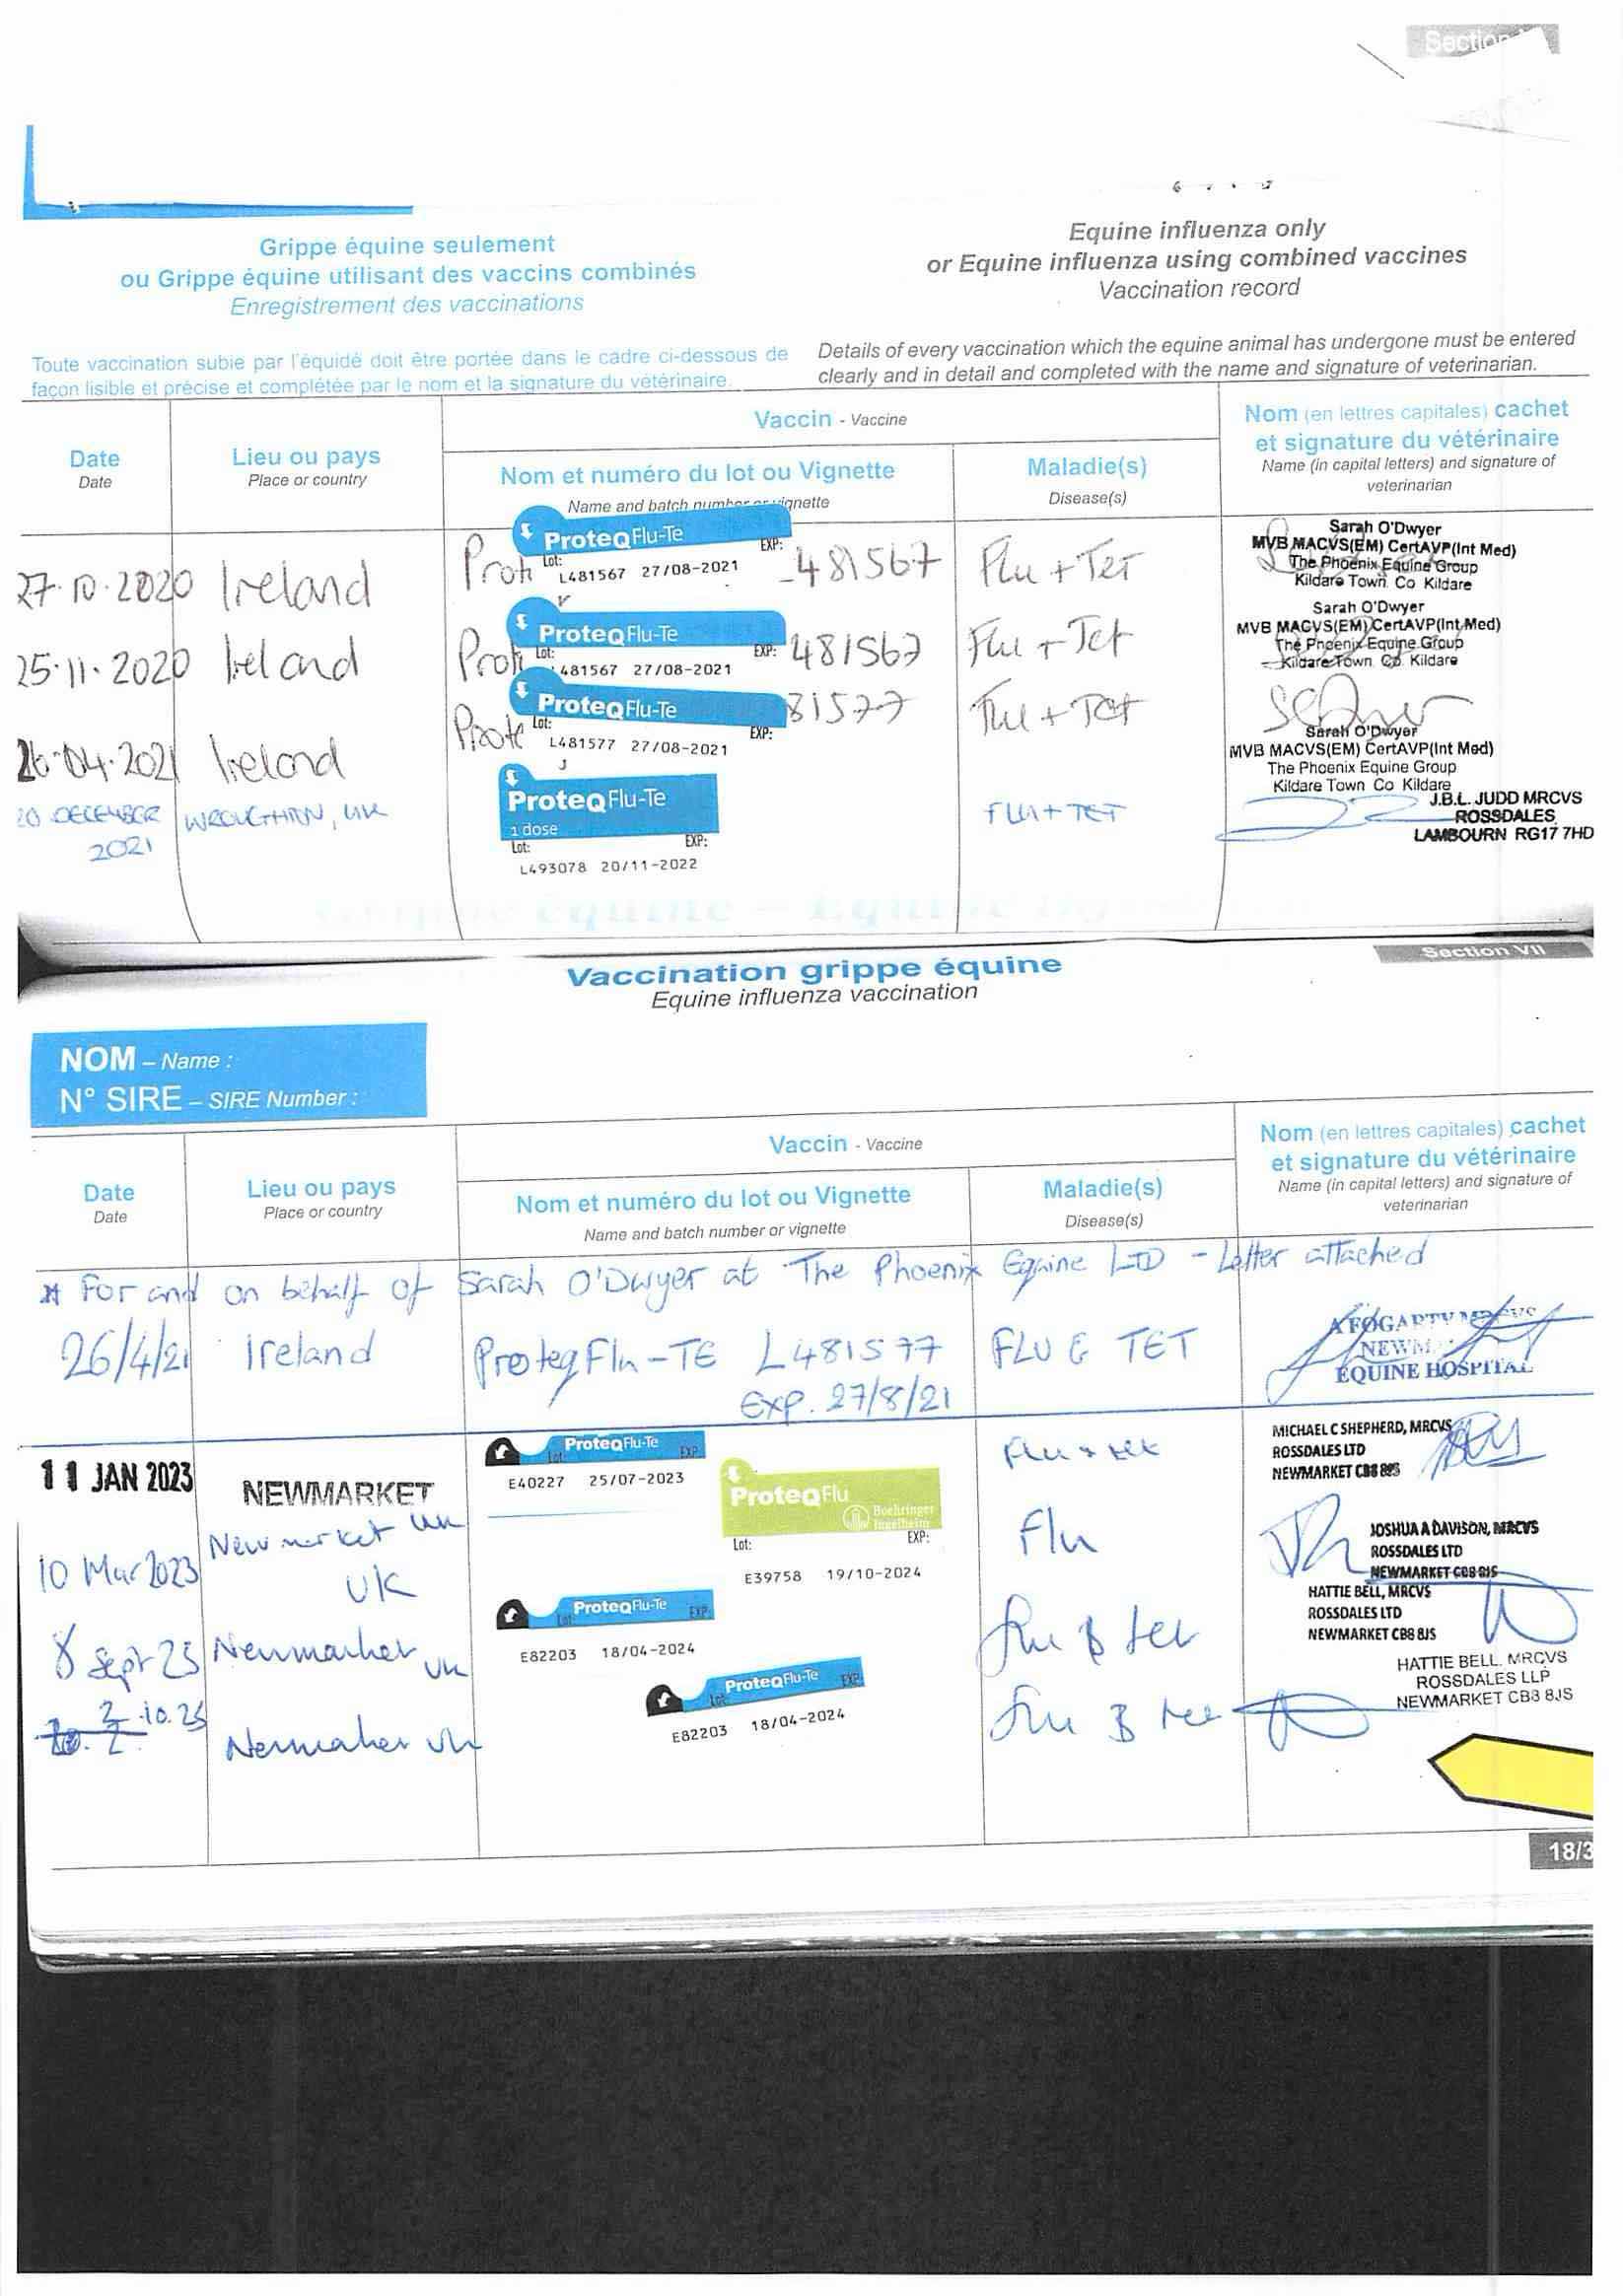 Section
Grippe équine seulement
ou Grippe équine utilisant des vaccins combinés
Enregistrement des vaccinations
Equine influenza only
or Equine influenza using combined vaccines
Vaccination record
Toute vaccination subie par l'équidé doit être portée dans le cadre ci-dessous de
façon lisible et précise et complétée par le nom et la signature du vétérinaire.
Details of every vaccination which the equine animal has undergone must be entered
clearly and in detail and completed with the name and signature of veterinarian.
Date
Date
Lieu ou pays
Place or country
Vaccin - Vaccine
Nom et numéro du lot ou Vignette
Name and batch number or vignette
Maladie(s)
Disease(s)
Nom (en lettres capitales) cachet
et signature du vétérinaire
Name (in capital letters) and signature of
veterinarian
27.10.2020 Ireland
ProteqFlu-Te
Lot: EXP:
L481567 27/08-2021
481567
Flu + Tet
Sarah O'Dwyer
MVB MACVS(EM) CertAVP(Int Med)
The Phoenix Equine Group
Kildare Town Co Kildare
25.11.2020 Ireland
ProteqFlu-Te
Lot: EXP:
481567 27/08-2021
481567
Flu + Tet
Sarah O'Dwyer
MVB MACVS(EM) CertAVP(Int Med)
The Phoenix Equine Group
Kildare Town Co Kildare
26.04.2021 Ireland
Prote
ProteqFlu-Te
Lot: EXP:
L481577 27/08-2021
81577
Flu + Tet
Sarah O'Dwyer
MVB MACVS(EM) CertAVP(Int Med)
The Phoenix Equine Group
Kildare Town Co Kildare
20 DECEMBER
2021
WROUGHTON, UK
ProteqFlu-Te
1 dose
Lot: EXP:
L493078 20/11-2022
FLU + TET
J.B.L. JUDD MRCVS
ROSSDALES
LAMBOURN RG17 7HD
Section VII
Vaccination grippe équine
Equine influenza vaccination
NOM – Name :
N° SIRE – SIRE Number :
Date
Date
Lieu ou pays
Place or country
Vaccin - Vaccine
Nom et numéro du lot ou Vignette
Name and batch number or vignette
Maladie(s)
Disease(s)
Nom (en lettres capitales) cachet
et signature du vétérinaire
Name (in capital letters) and signature of
veterinarian
* For and on behalf of Sarah O'Dwyer at The Phoenix Equine LTD - Letter attached
26/4/21 Ireland ProteqFlu-TE L481577 FLU & TET
Exp. 27/8/21
A FOGARTY MRCVS
EQUINE HOSPITAL
11 JAN 2023 NEWMARKET
UK
ProteqFlu-Te
Lot: EXP:
E40227 25/07-2023
Flu + tet
MICHAEL C SHEPHERD, MRCVS
ROSSDALES LTD
NEWMARKET CB8 8JS
10 Mar 2023 Newmarket
UK
ProteqFlu
Boehringer
Ingelheim
Lot: EXP:
E39758 19/10-2024
Flu
JOSHUA A DAVISON, MRCVS
ROSSDALES LTD
NEWMARKET CB8 8JS
8 Sept 23 Newmarket UK
ProteqFlu-Te
Lot: EXP:
E82203 18/04-2024
flu & tet
HATTIE BELL, MRCVS
ROSSDALES LTD
NEWMARKET CB8 8JS
2.10.23 Newmarket UK
ProteqFlu-Te
Lot: EXP:
E82203 18/04-2024
flu & tet
HATTIE BELL, MRCVS
ROSSDALES LLP
NEWMARKET CB8 8JS
18/3